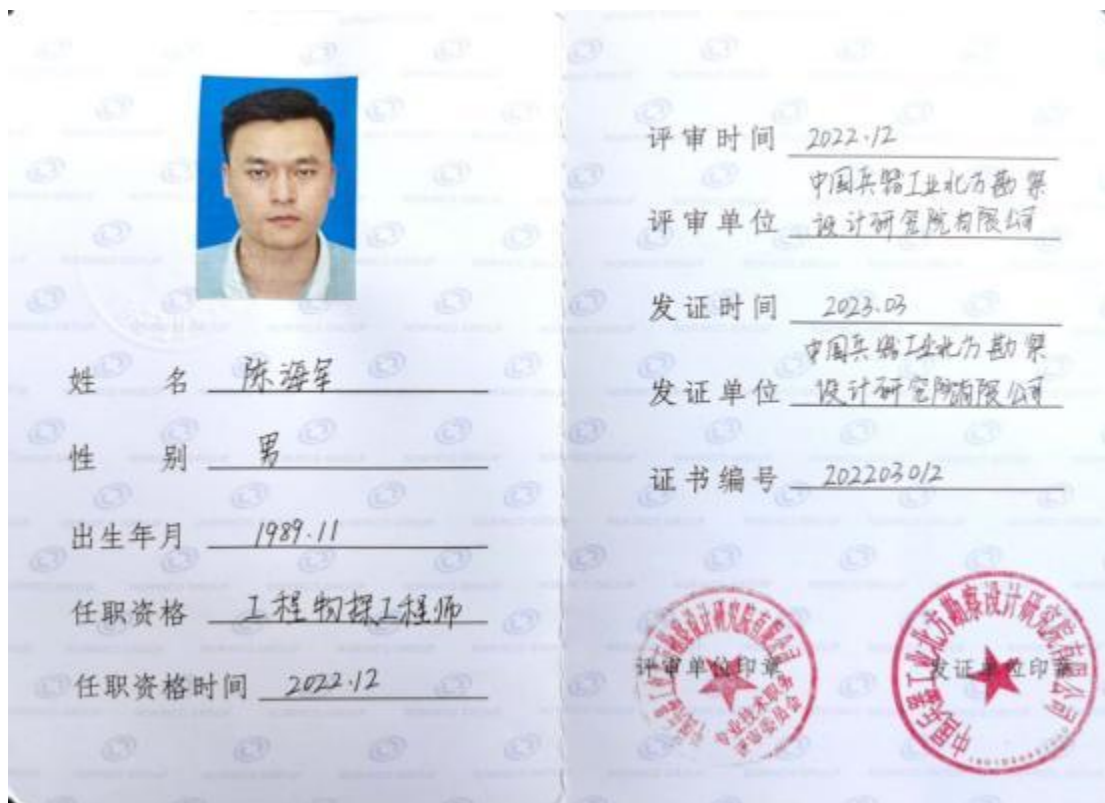 姓名 陈海军
性别 男
出生年月 1989.11
任职资格 工程物探工程师
任职资格时间 2022.12
评审时间 2022.12
中国兵器工业北方勘察
评审单位 设计研究院有限公司
发证时间 2023.03
中国兵器工业北方勘察
发证单位 设计研究院有限公司
证书编号 202203012
评审单位印章
专业技术职务
评审委员会
发证单位印章
中国兵器工业北方勘察设计研究院有限公司